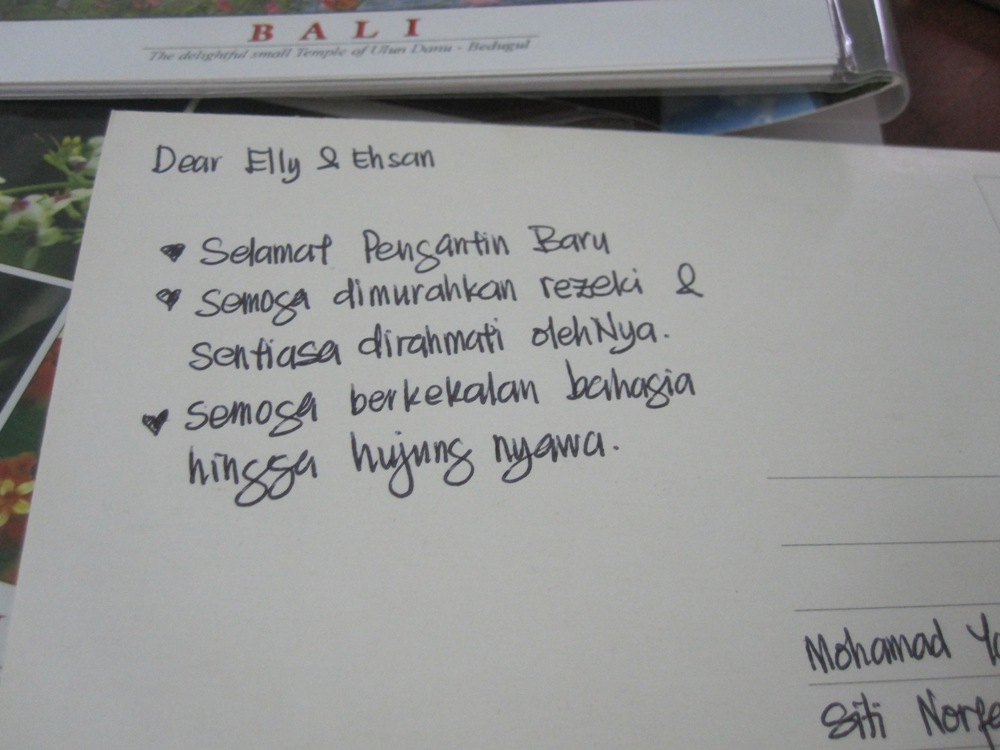 BALI
The delightful small Temple of Ulun Danu - Bedugul
Dear Elly & Ehsan
♥ Selamat Pengantin Baru
♥ Semoga dimurahkan rezeki &
sentiasa dirahmati olehNya.
♥ semoga berkekalan bahagia
hingga hujung nyawa.
Mohamad
Siti